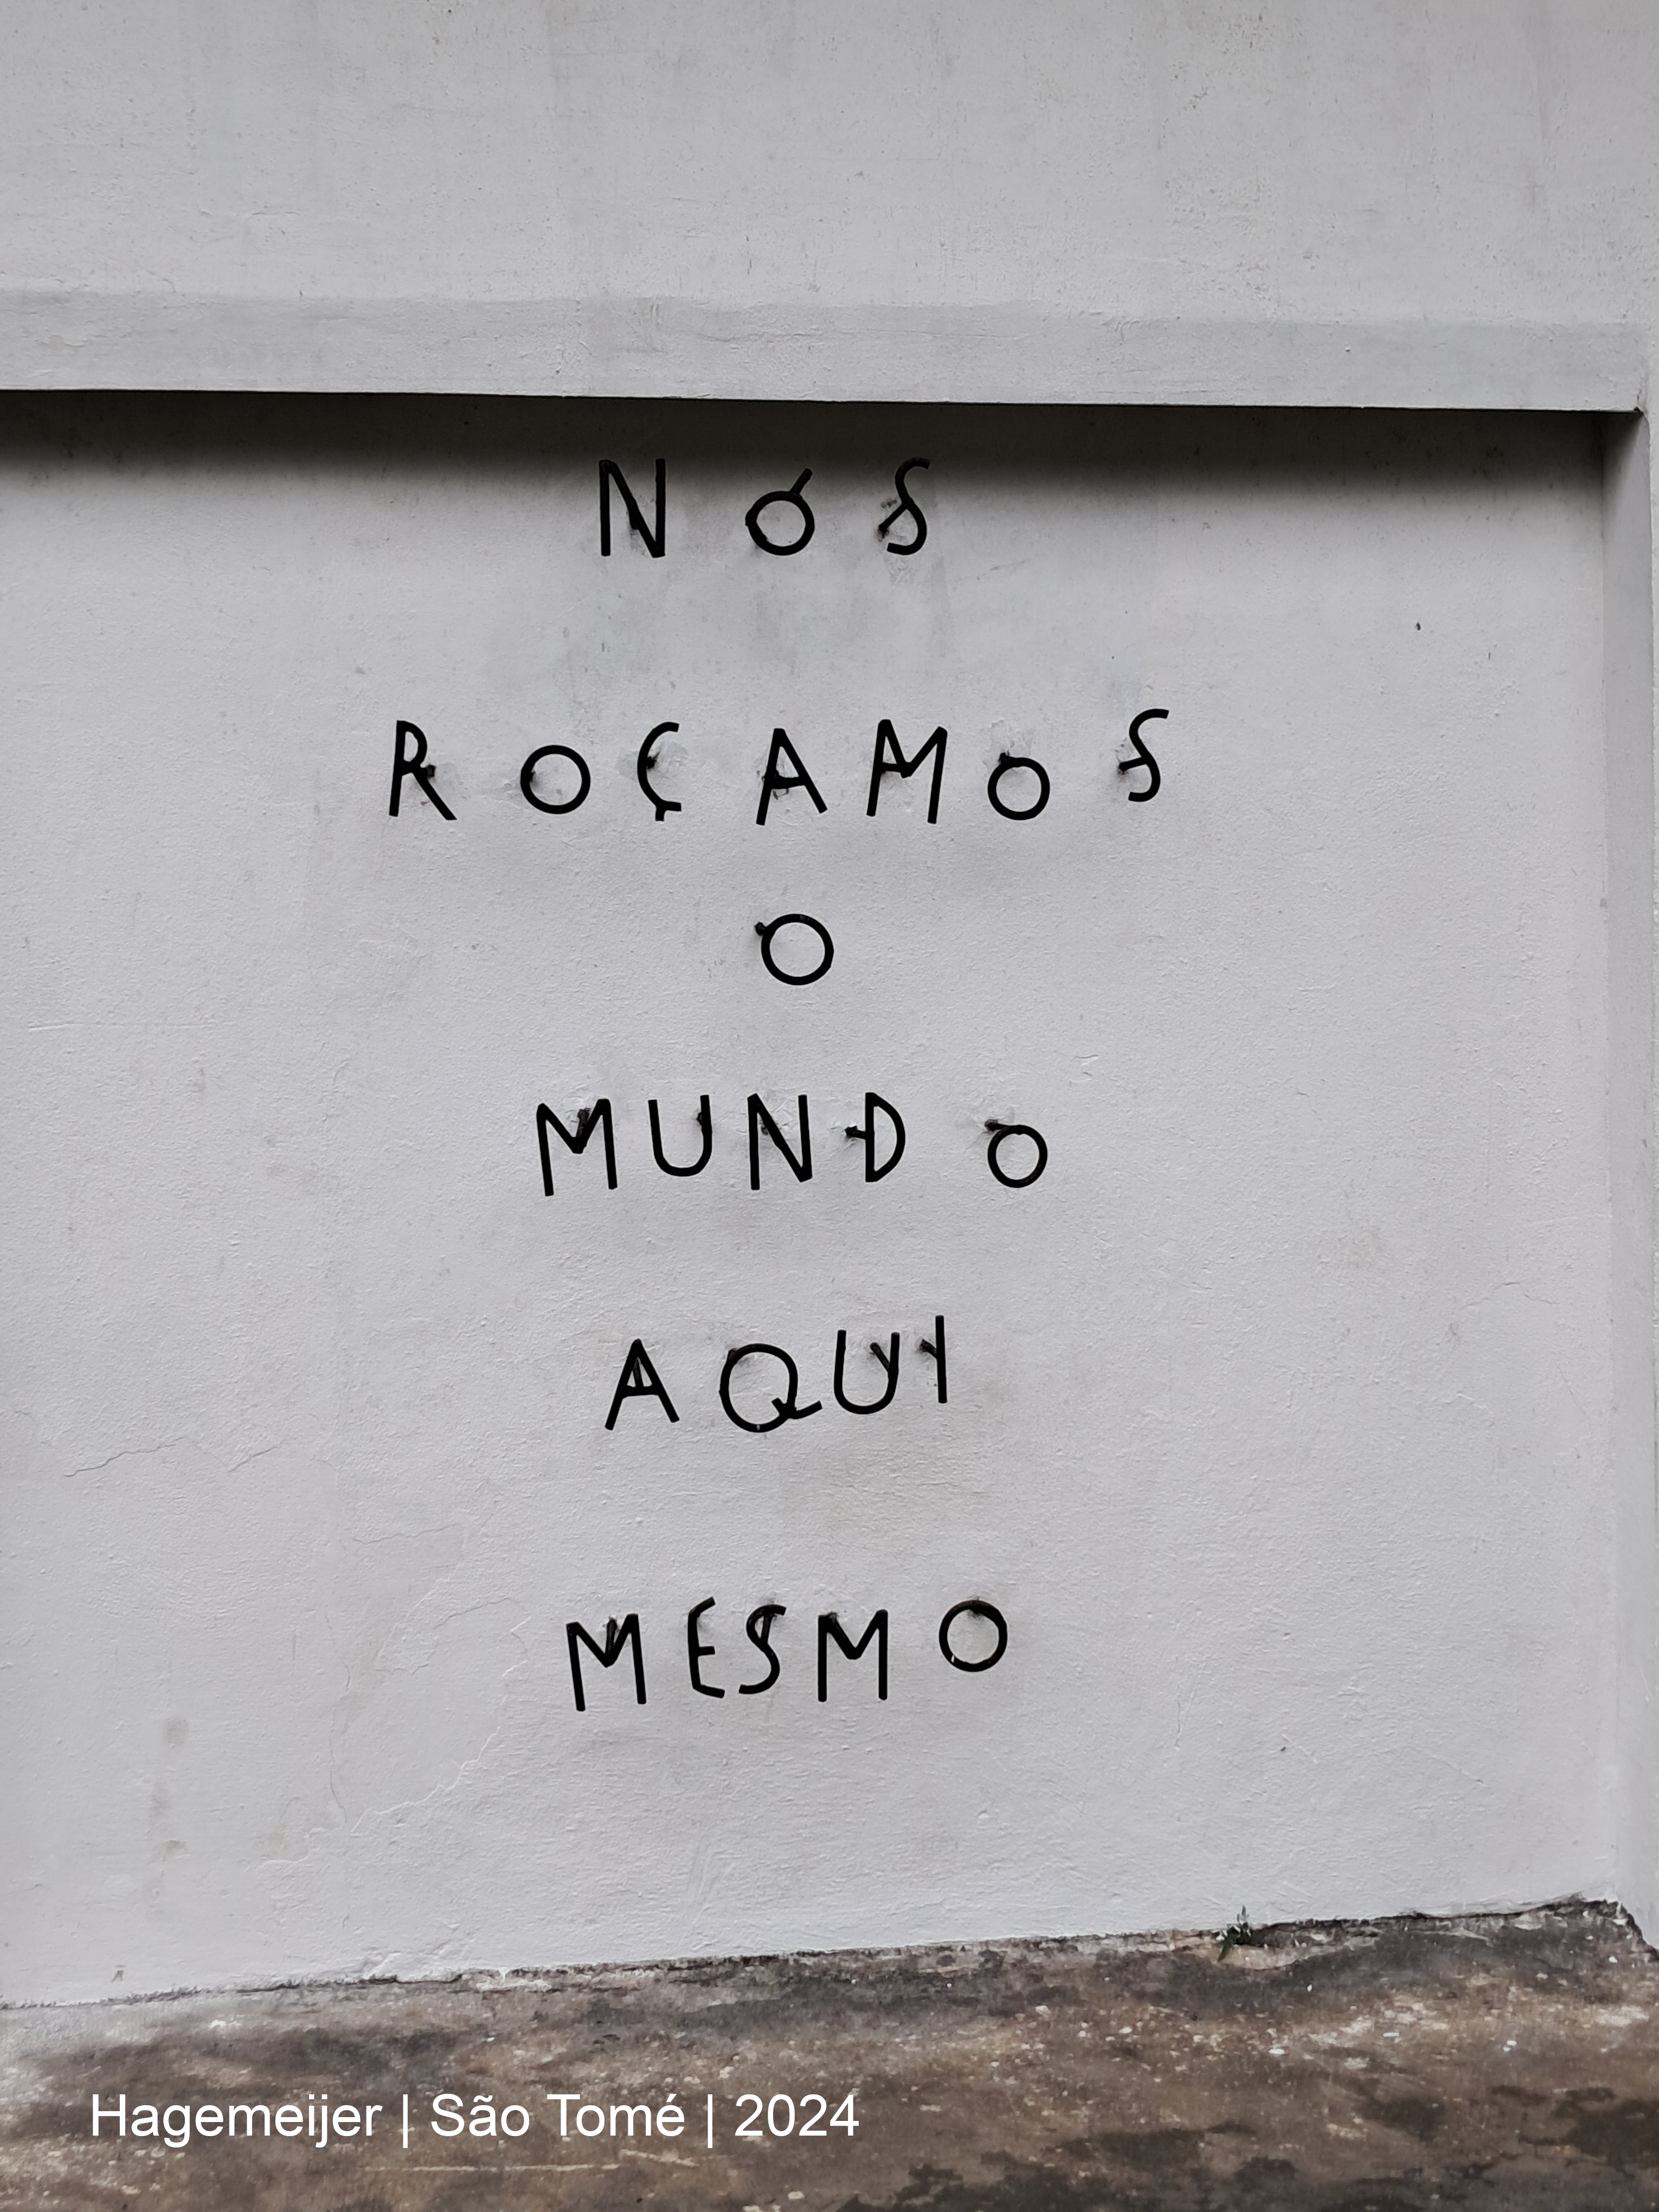 NÓS
ROÇAMOS
O
MUNDO
AQUI
MESMO
Hagemeijer | São Tomé | 2024